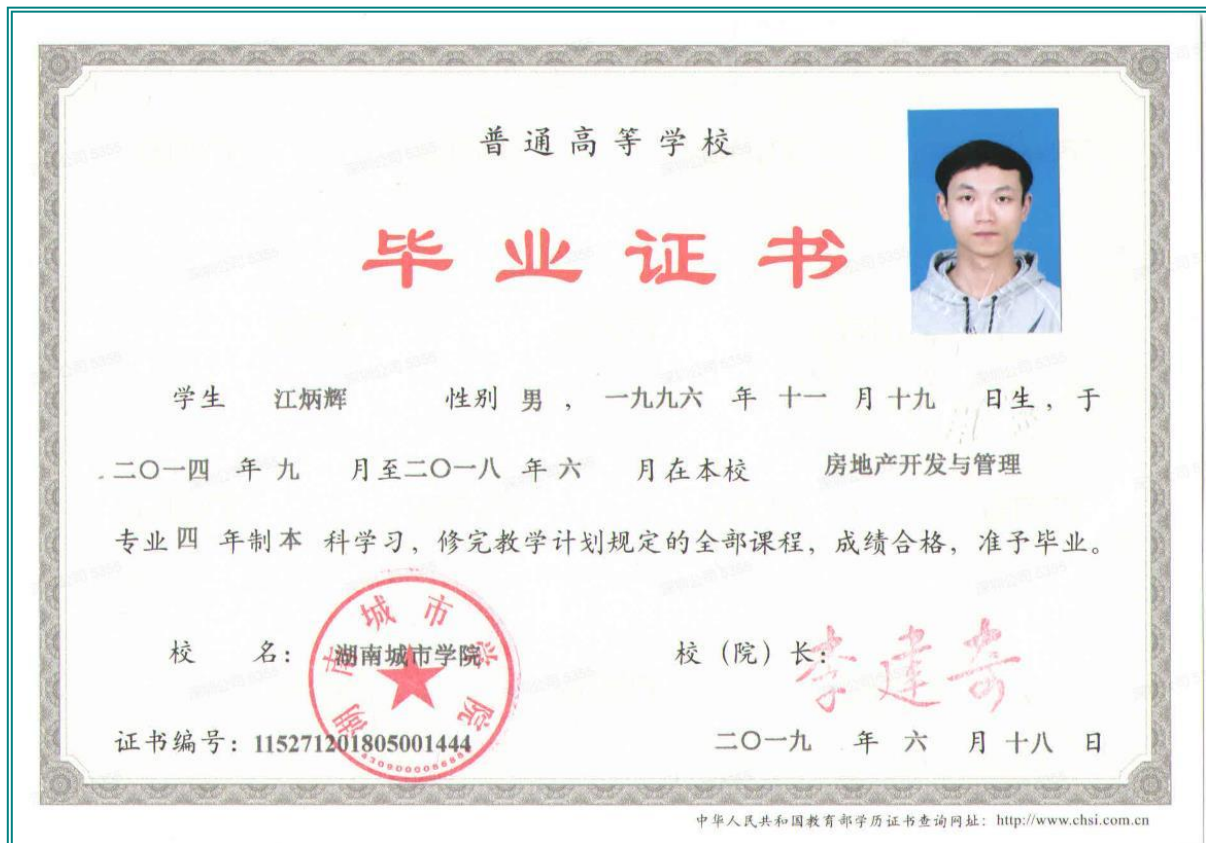 普通高等学校
毕业证书
学生 江炳辉 性别 男 , 一九九六 年 十一 月 十九 日生, 于
二〇一四 年 九 月至二〇一八 年 六 月在本校 房地产开发与管理
专业 四 年制 本 科学习, 修完教学计划规定的全部课程, 成绩合格, 准予毕业。
校 名: 湖南城市学院
湖南城市学院
校（院）长: 李建奇
证书编号: 115271201805001444
二〇一九 年 六 月 十八 日
中华人民共和国教育部学历证书查询网址: http://www.chsi.com.cn